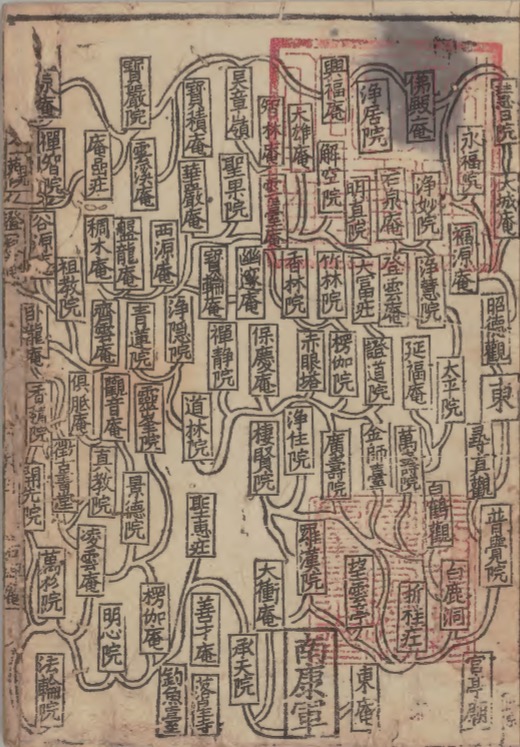 慧日院
大城庵
永福院
淨居院
興福庵
大雄庵
解空院
吴章嶺
寶積庵
寶嚴院
雲溪庵
禪智院
聖果院
華嚴庵
明真院
石泉庵
淨妙院
福源庵
西源庵
盤龍庵
稠木庵
祖教院
寶輪庵
香林院
竹林院
大富莊
登雲庵
淨慧院
昭德觀
東
淨隱院
青蓮院
齊雲庵
臥龍庵
禪静院
保慶庵
赤眼塔
楞伽院
證道院
延福庵
太平院
尋真觀
俱胝庵
觀音庵
靈峯院
道林院
棲賢院
淨住院
廣壽院
金師臺
萬壽院
白鶴觀
普寶院
直教院
景德院
開先院
聖惠莊
凌雲庵
萬杉院
羅漢院
望雲亭
折桂莊
白鹿洞
明心院
楞伽庵
善才庵
太衝庵
承天院
法輪院
釣魚臺
落星寺
南康軍
東庵
官亭廟